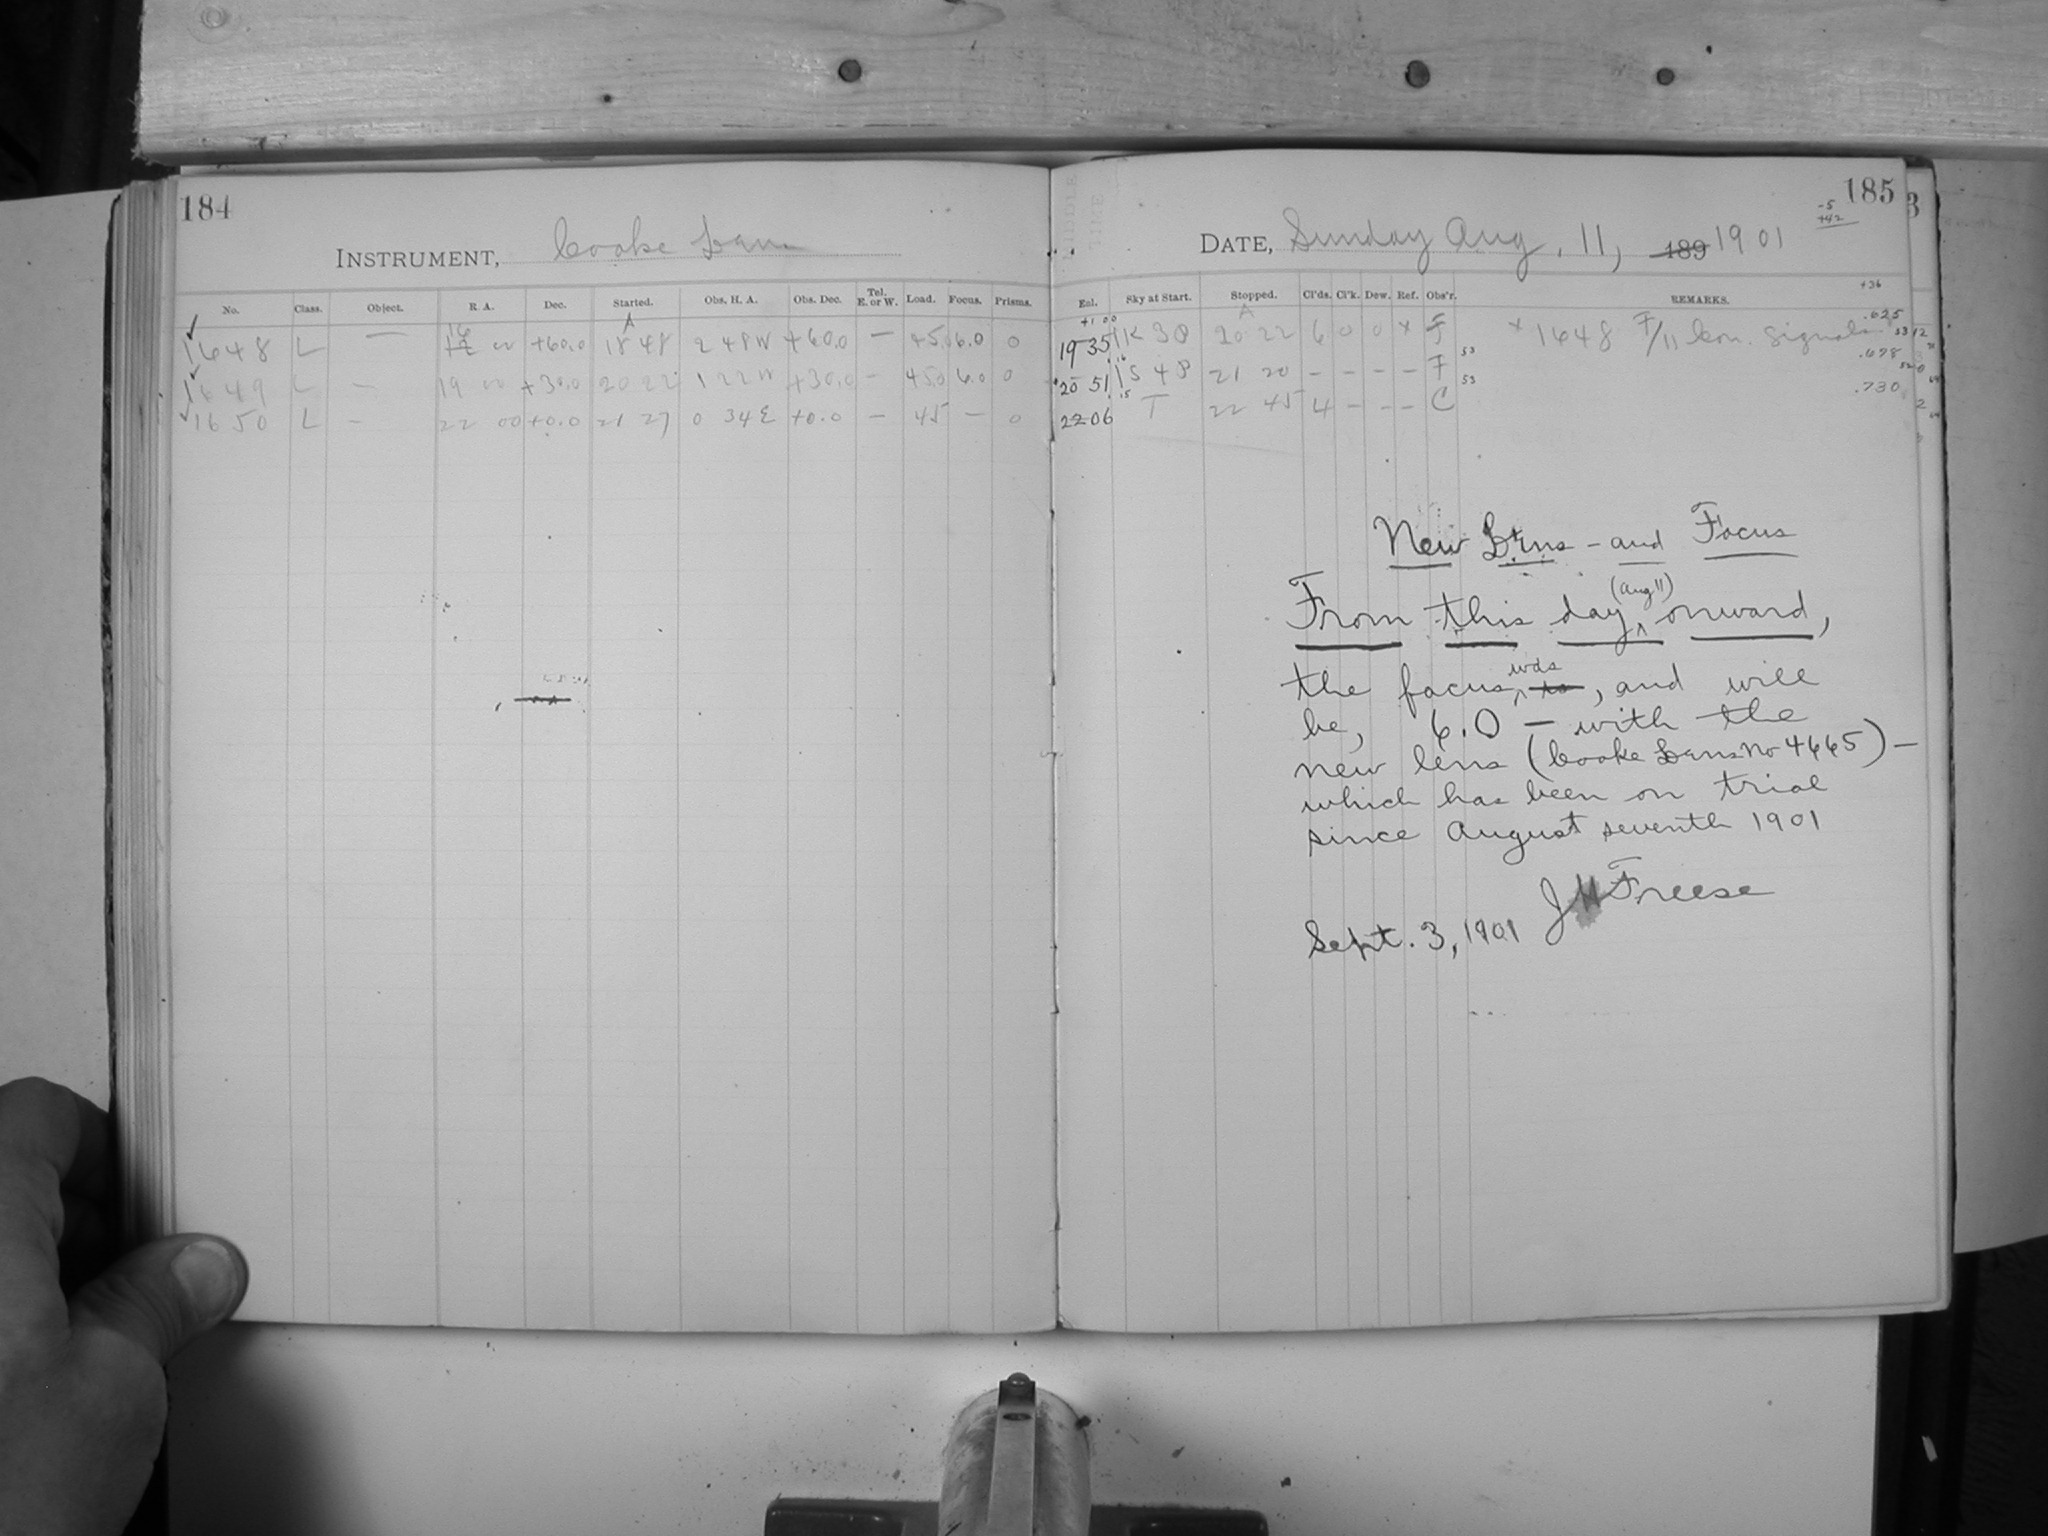 184
INSTRUMENT, Cooke Lens
No. Class. Object. R. A. Dec. Started. Obs. H. A. Obs. Dec. Tel. E. or W. Load. Focus. Prisms.
A
1648 L — 16 00 +60.0 18 48 2 48W +60.0 — 45.0 6.0 0
1649 L — 19 00 +30.0 20 22 1 22W +30.0 — 45.0 6.0 0
1650 L — 22 00 +0.0 21 27 0 34E +0.0 — 45 — 0
185
-5
+42
DATE, Sunday Aug. 11, 189 1901
+36
Exl. Sky at Start. Stopped. Cl'ds. Cl'k. Dew. Ref. Obs'r. REMARKS.
+1 00 A .625
19 35 1K 3P 20 22 6 0 0 x F x 1648 F/11 Con. Signals 53
20 51 1S 4P 21 20 – – – – F 53 .678
22 06 T 22 45 4 – – – C 53 .730
New Lens - and Focus
(Aug 11)
From this day ^ onward,
was
the focus ^ is, and will
be, 6.0 — with the
new lens (Cooke Lens No 4665) —
which has been on trial
since August seventh 1901
J H Freese
Sept. 3, 1901